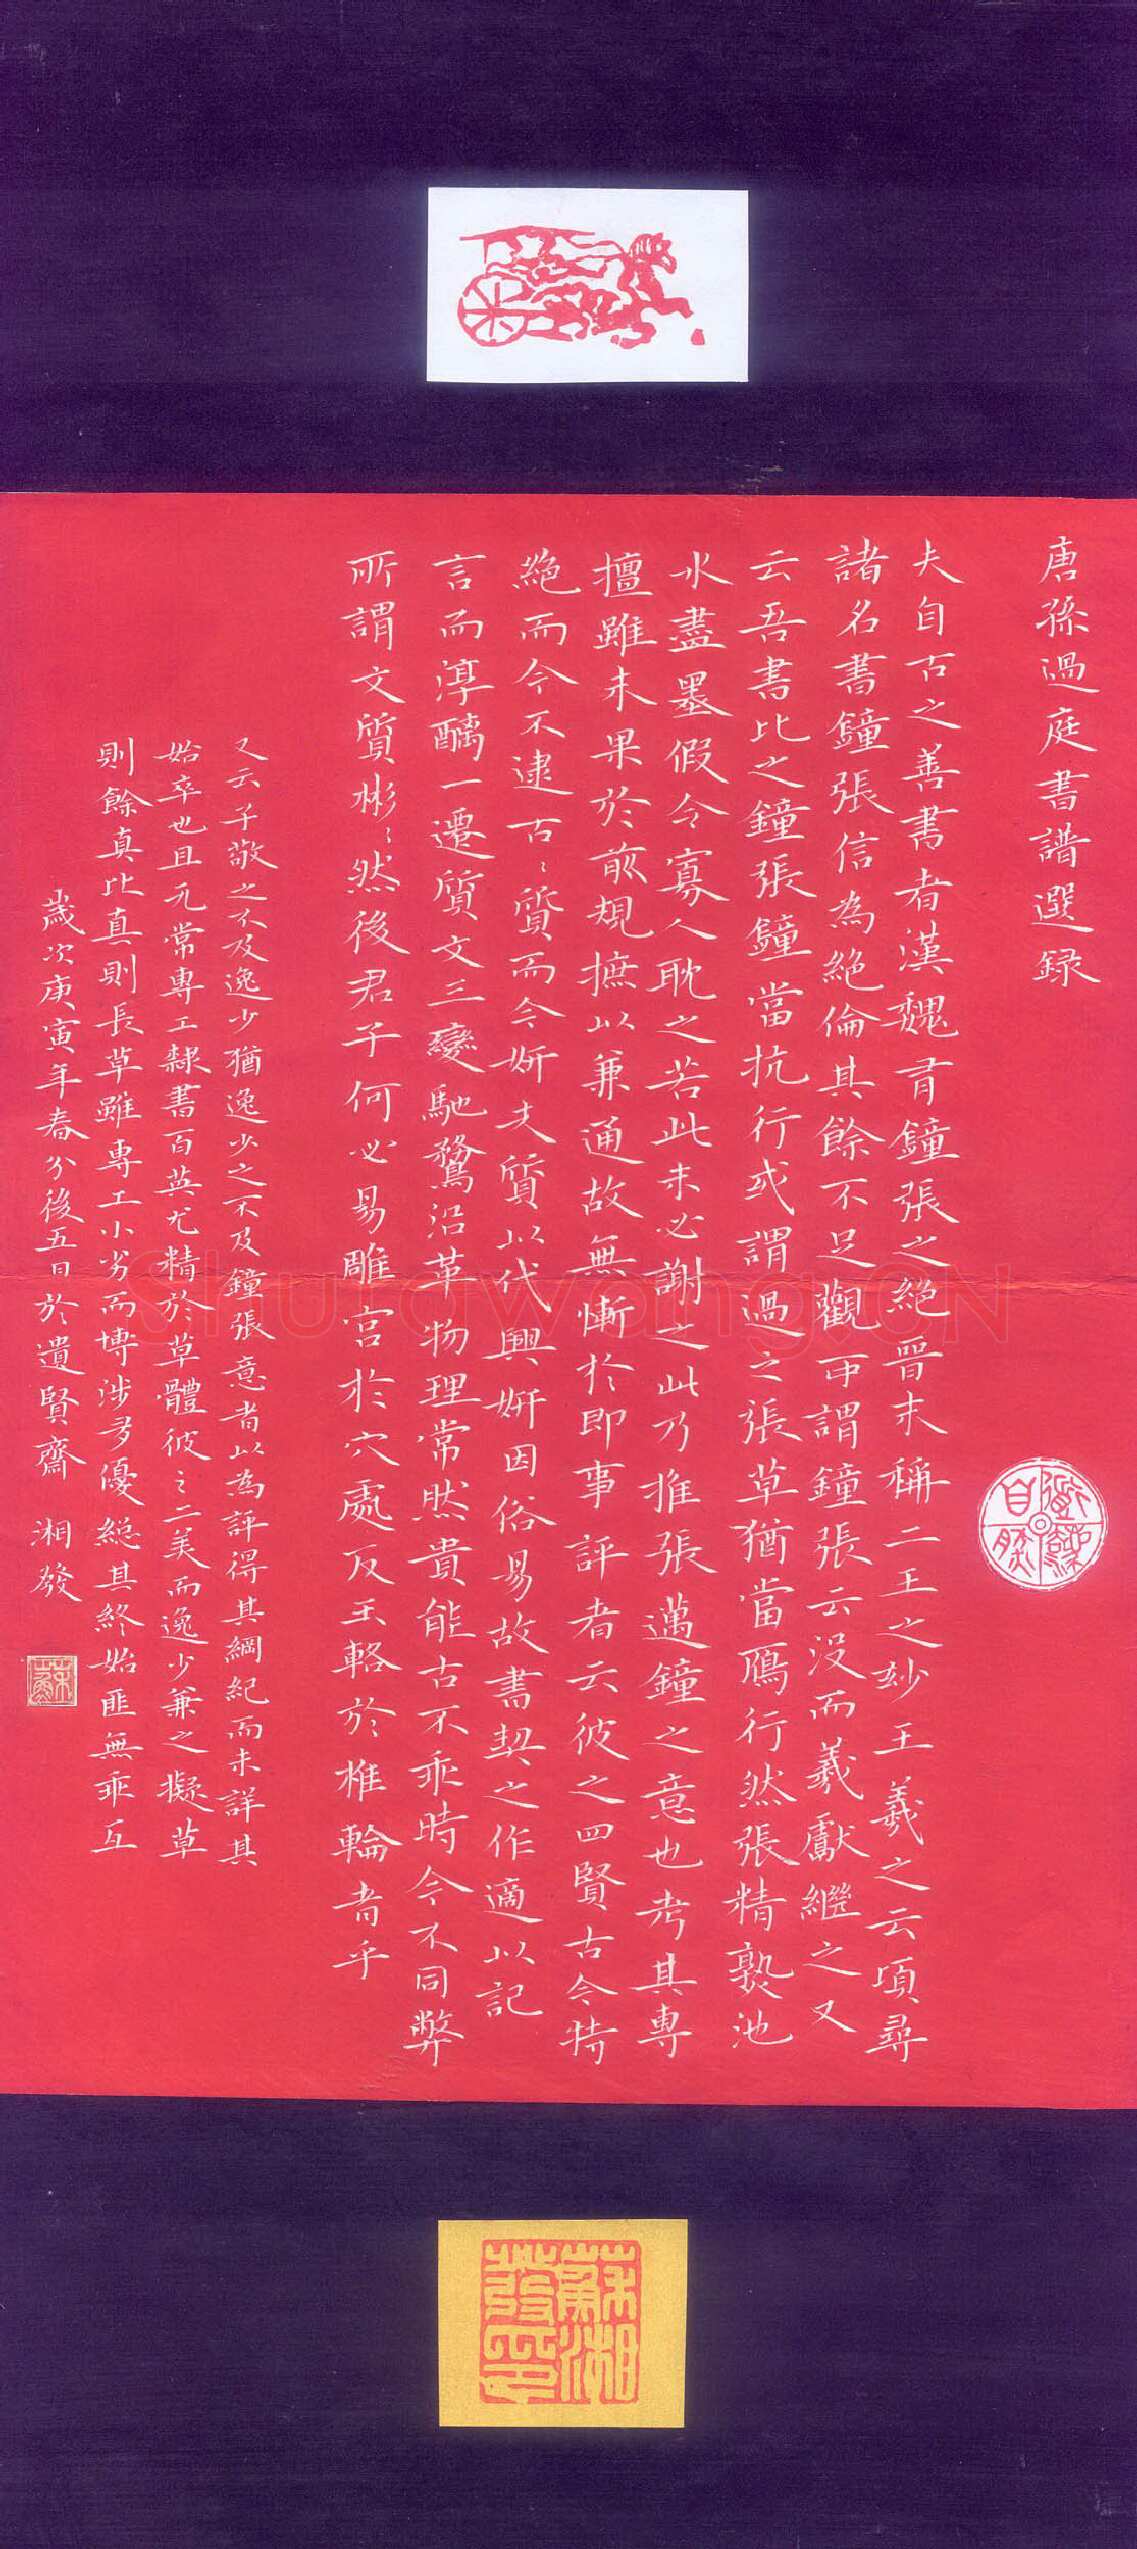 唐孫過庭書譜選録
夫自古之善書者漢魏有鐘張之絕晉末稱二王之妙王羲之云頃尋
諸名書鐘張信為絕倫其餘不足觀可謂鐘張云沒而羲獻繼之又
云吾書比之鐘張鐘當抗行或謂過之張草猶當鴈行然張精熟池
水盡墨假令寡人耽之若此未必謝之此乃推張邁鐘之意也考其專
擅雖未果於前規摭以兼通故無慚於即事評者云彼之四賢古今特
絕而今不逮古〻質而今妍夫質以代興妍因俗易故書契之作適以記
言而淳醨一遷質文三變馳騖沿革物理常然貴能古不乖時今不同弊
所謂文質彬〻然後君子何必易雕宮於穴處反玉輅於椎輪者乎
又云子敬之不及逸少猶逸少之不及鐘張意者以為評得其綱紀而未詳其
始卒也且元常專工隸書百英尤精於草體彼之二美而逸少兼之擬草
則餘真比真則長草雖專工小劣而博涉多優總其終始匪無乖互
歲次庚寅年春分後五日於遺賢齋 湘發
蘇
蘇湘發印